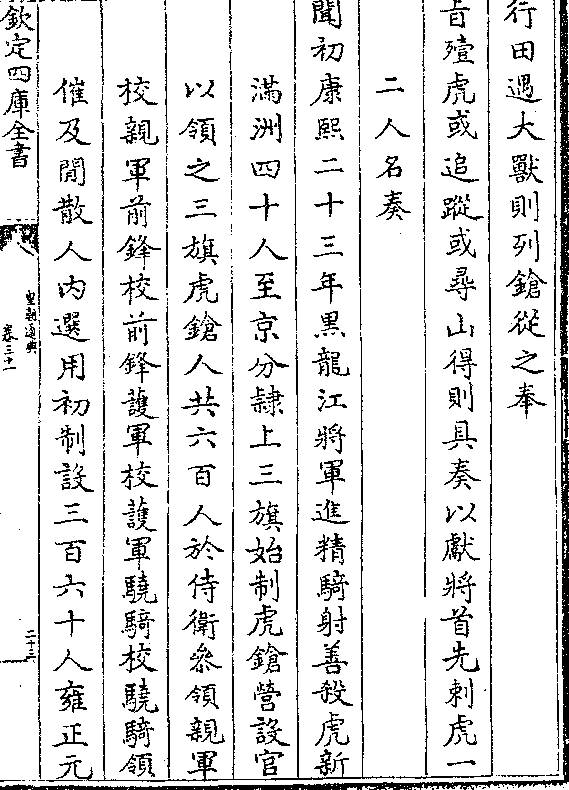 行田遇大獸則列鎗從之奉
旨殪虎或追蹤或尋山得則具奏以獻將首先刺虎一
二人名奏
聞初康熙二十三年黑龍江將軍進精騎射善殺虎新
滿洲四十人至京分隷上三旗始制虎鎗營設官
以領之三旗虎鎗人共六百人於侍衛叅領親軍
校親軍前鋒校前鋒護軍校護軍驍騎校驍騎領
催及閒散人内選用初制設三百六十人雍正元
欽定四庫全書
皇朝通典
卷三十一
二十三